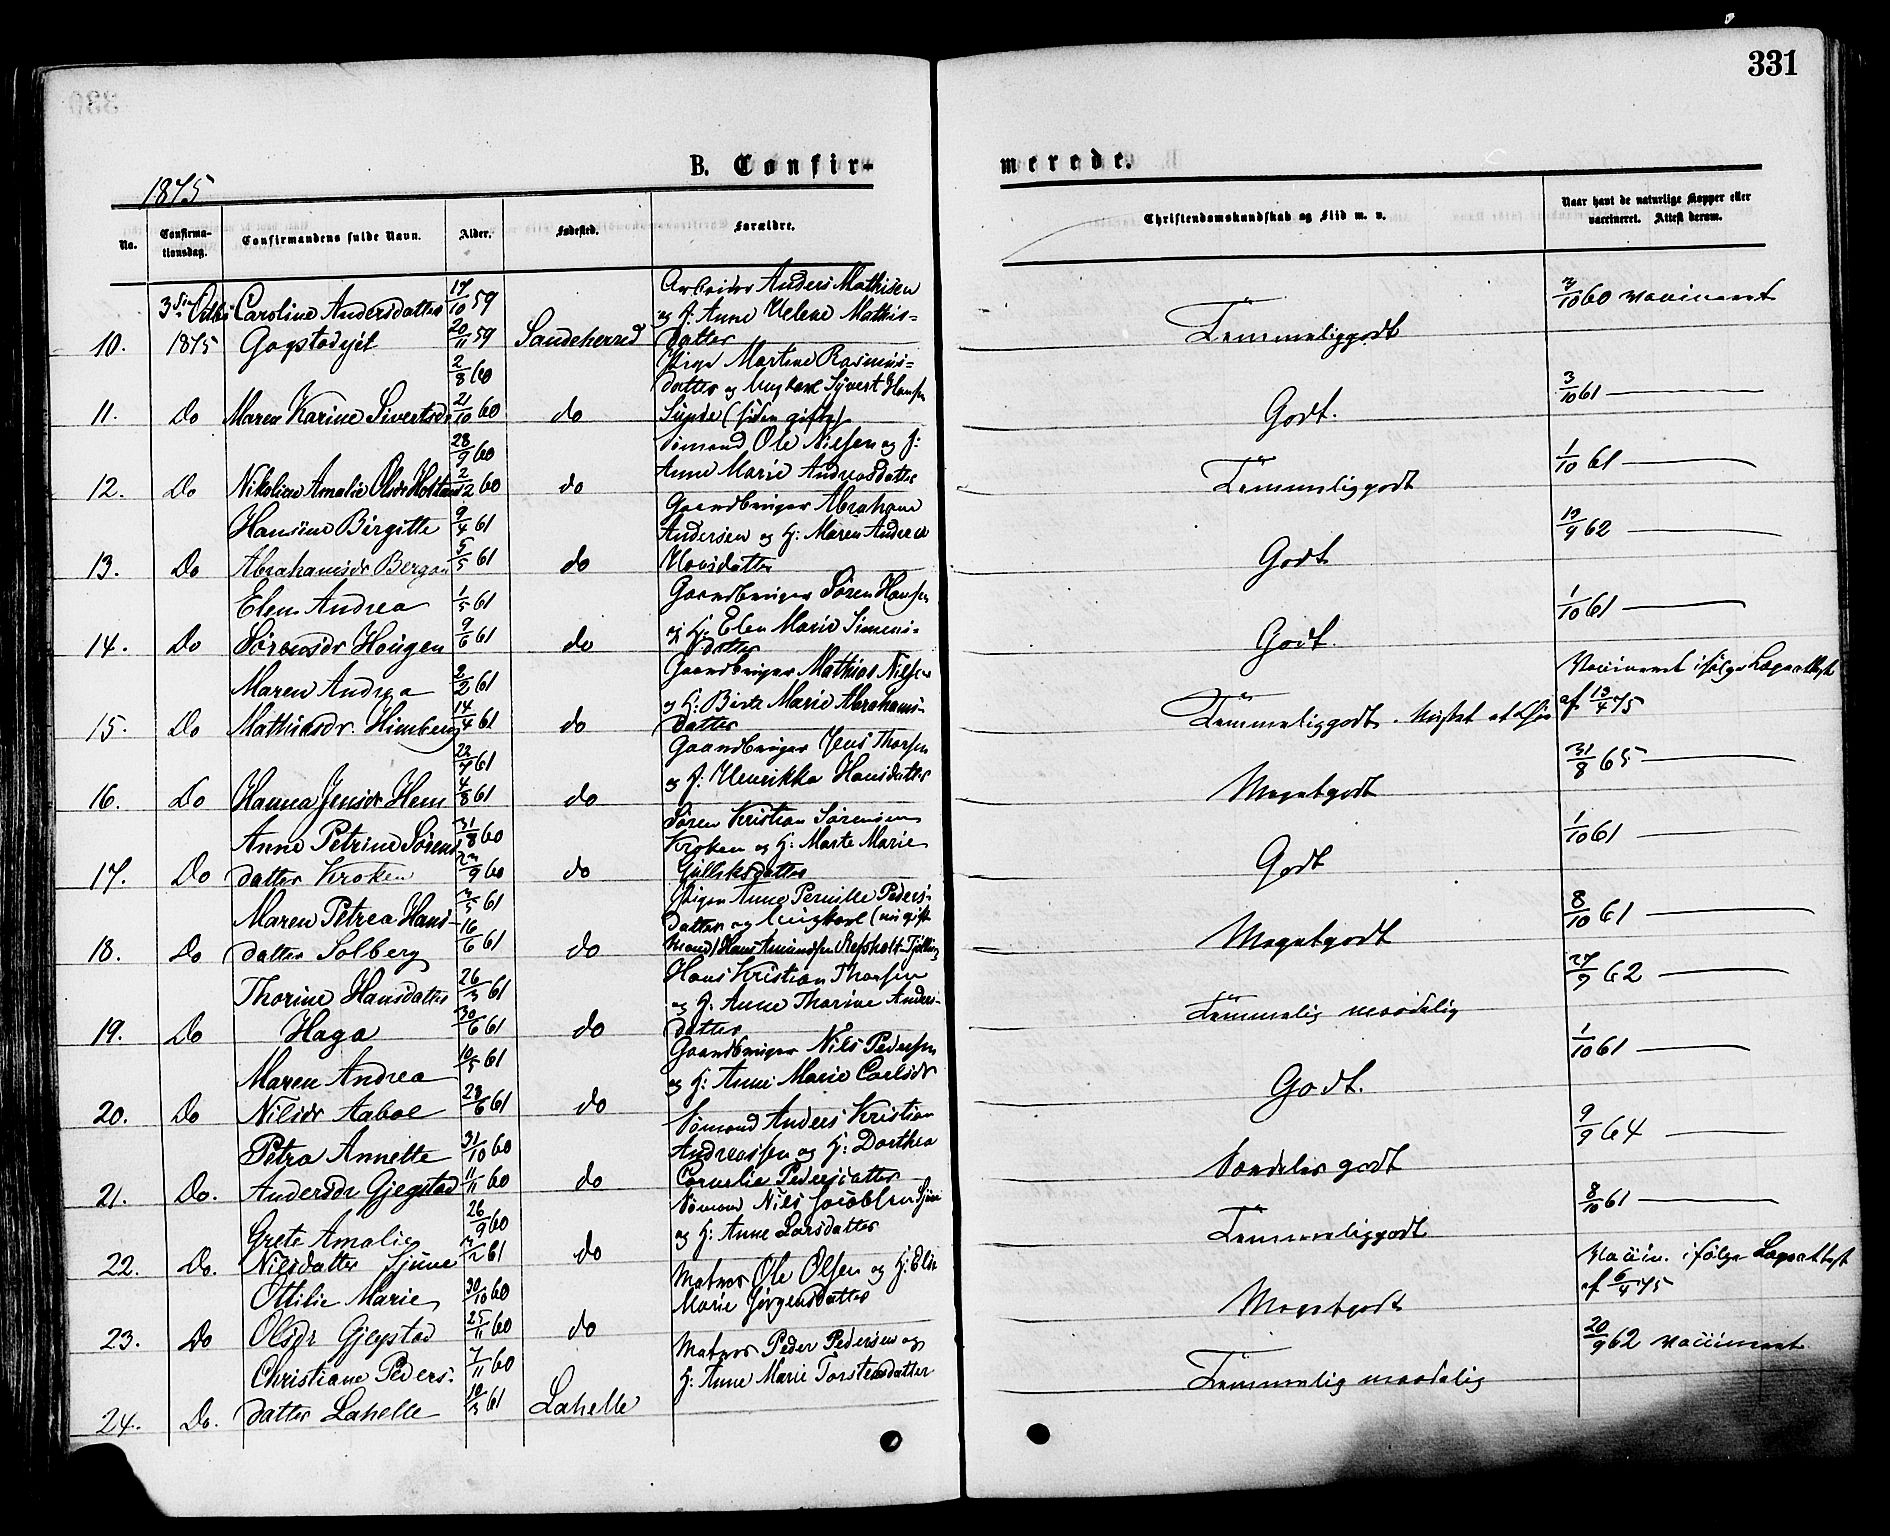 331
B. Confir-
merede.
1875
No.
Confirma-
tionsdag.
Confirmandens fulde Navn.
Alder.
Fødested.
Forældre.
Christendomskundskab og Flid m. v.
Naar havt de naturlige Kopper eller
vaccineret. Attest derom.
3die Octbr Caroline Andersdatter 17/10 59 Arbeider Anders Mathisen
og H. Anne Helene Mathis-
10. 1875 Gogstadejet 20/11 59 Sandeherred datter Temmeliggodt 3/10 60 vaccineret
2/8 60 Pige Martine Rasmus-
datter og Ungkarl Syvert Hansen
11. Do Maren Karine Sivertsdr 21/10 60 do Sunde (siden gifte) Godt. 3/10 61
28/9 60 Sømand Ole Nilsen og H:
12. Do Nikoline Amalie Olsdr 2/12 60 do Anne Marie Andreasdatter Temmeliggodt 1/10 61
Hansine Birgitte 9/4 61 Gaardbruger Abraham
Andersen og H: Maren Andrea
13. Do Abrahamsdr Bergan 5/5 61 do Hansdatter Godt 19/9 62
Elen Andrea 1/5 61 Gaardbruger Søren Hansen
og H: Elen Marie Simens-
14. Do Sørensdr Haugen 9/6 61 do datter Godt. 1/10 61
Maren Andrea 2/2 61 Gaardbruger Mathias Nilsen
og H: Berte Marie Abrahams-
15. Do Mathiasdr. Himberg 14/4 61 do datter Temmeliggodt. Mistet et Øie Vaccineret ifølge Lægeattest
af 13/4 75
22/7 61 Gaardbruger Jens Thorsen
16. Do Hanna Jensdr Hem 4/8 61 do og H: Henrikka Hansdatter Megetgodt 31/8 65
Anne Petrine Sørens- 31/8 60 Søren Kristian Sørensen
Kroken og H: Marte Marie
17. Do datter Kroken 23/9 60 do Gulliksdatter Godt 1/10 61
Maren Petrea Hans- 3/5 61 Pigen Anne Pernille Peders-
datter og Ungkarl (nu gift
18. Do datter Solberg 16/6 61 do Mand) Hans Amundsen Tjølling Megetgodt 8/10 61
Thorine Hansdatter 26/3 61 Hans Kristian Thorsen
og H: Anne Thorine Anders-
19. Do Haga 30/6 61 do datter Temmelig maadelig 27/9 62
Maren Andrea 10/5 61 Gaardbruger Nils Pedersen
20. Do Nilsdr Aabol 23/6 61 do og H: Anne Marie Carlsdr Godt. 1/10 61
Petra Annette 31/10 60 Sømand Anders Kristian
Andreassen og H: Dorthea
21. Do. Andersdr Gjegstad 11/11 60 do Cornelia Pedersdatter Særdeles godt 9/9 64
Grete Amalie 26/9 60 Sømand Nils Jacobsen
22. Do. Nilsdatter Sjuve 3/2 61 do og H: Anne Larsdatter Temmeliggodt 8/10 61
Ottilie Marie 30/10 60 Matros Ole Olsen og H: Else
23. Do Olsdr Gjegstad 25/11 60 do Marie Jørgensdatter Megetgodt Vaccin. ifølge Lægeattest
af 6/4 75
Christiane Peders- 7/11 60 Matros Peder Pedersen og
24. Do. datter Lahelle 10/3 61 Lahelle H: Anne Marie Torstensdatter Temmelig maadelig 20/9 62 vaccineret